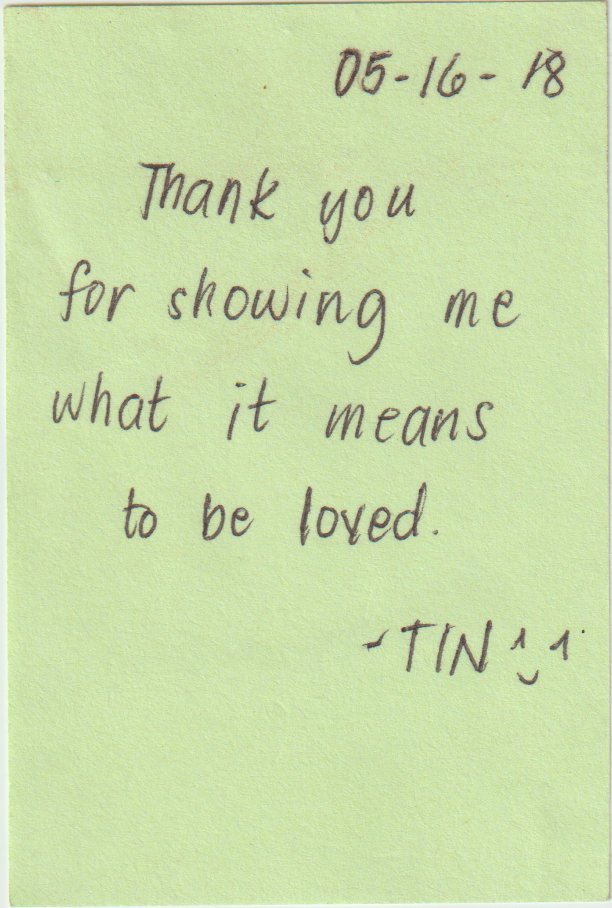 05-16-18
Thank you
for showing me
what it means
to be loved.
-TIN ^‿^